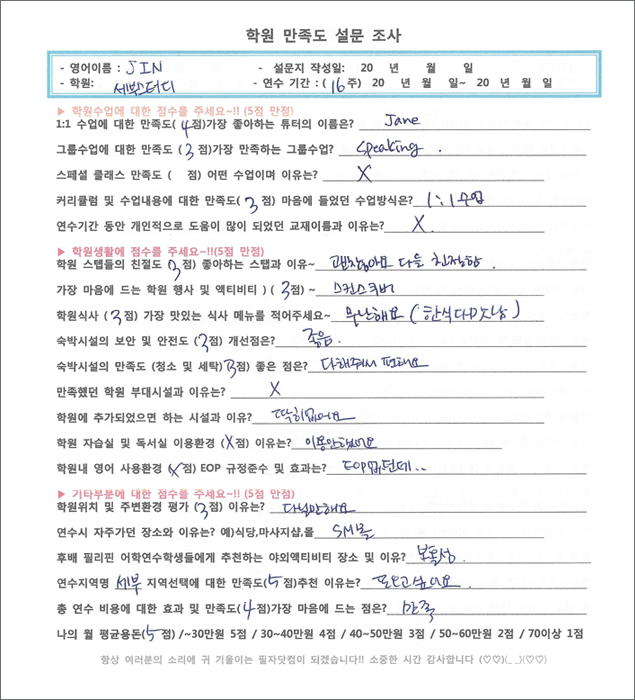 학원 만족도 설문 조사
- 영어이름 : JIN - 설문지 작성일: 20 년 월 일
- 학원: 세부스터디 - 연수 기간 : (16주) 20 년 월 일~ 20 년 월 일
▶ 학원수업에 대한 점수를 주세요~!! (5점 만점)
1:1 수업에 대한 만족도( 4점)가장 좋아하는 튜터의 이름은? Jane
그룹수업에 대한 만족도 ( 3점)가장 만족하는 그룹수업? speaking.
스페셜 클래스 만족도 ( 점) 어떤 수업이며 이유는? X
커리큘럼 및 수업내용에 대한 만족도( 3점) 마음에 들었던 수업방식은? 1:1수업
연수기간 동안 개인적으로 도움이 많이 되었던 교재이름과 이유는? X.
▶ 학원생활에 점수를 주세요~!!(5점 만점)
학원 스탭들의 친절도 (3점) 좋아하는 스탭과 이유~ 괜찮아요 다들 친절함.
가장 마음에 드는 학원 행사 및 액티비티 ) ( 3점) ~ 스킨스쿠버
학원식사 ( 3점) 가장 맛있는 식사 메뉴를 적어주세요~ 무난해요 (한식다맛남)
숙박시설의 보안 및 안전도 ( 3점) 개선점은? 좋음.
숙박시설의 만족도 (청소 및 세탁) 3점) 좋은 점은? 다해줘서 편해요
만족했던 학원 부대시설과 이유는? X
학원에 추가되었으면 하는 시설과 이유? 딱히없어요
학원 자습실 및 독서실 이용환경 (X점) 이유는? 이용안했어요
학원내 영어 사용환경 (X점) EOP 규정준수 및 효과는? EOP없던데..
▶ 기타부분에 대한 점수를 주세요~!! (5점 만점)
학원위치 및 주변환경 평가 ( 3점) 이유는? 다닐만해요
연수시 자주가던 장소와 이유는? 예)식당,마사지샵,몰 SM몰
후배 필리핀 어학연수학생들에게 추천하는 야외액티비티 장소 및 이유? 보홀섬
연수지역명 세부 지역선택에 대한 만족도(5점)추천 이유는?
총 연수 비용에 대한 효과 및 만족도( 4점)가장 마음에 드는 점은? 만족
나의 월 평균용돈( 5점) /~30만원 5점 / 30~40만원 4점 / 40~50만원 3점 / 50~60만원 2점 / 70이상 1점
항상 여러분의 소리에 귀 기울이는 필자닷컴이 되겠습니다!! 소중한 시간 감사합니다 (♡♡)(_ _)(♡♡)